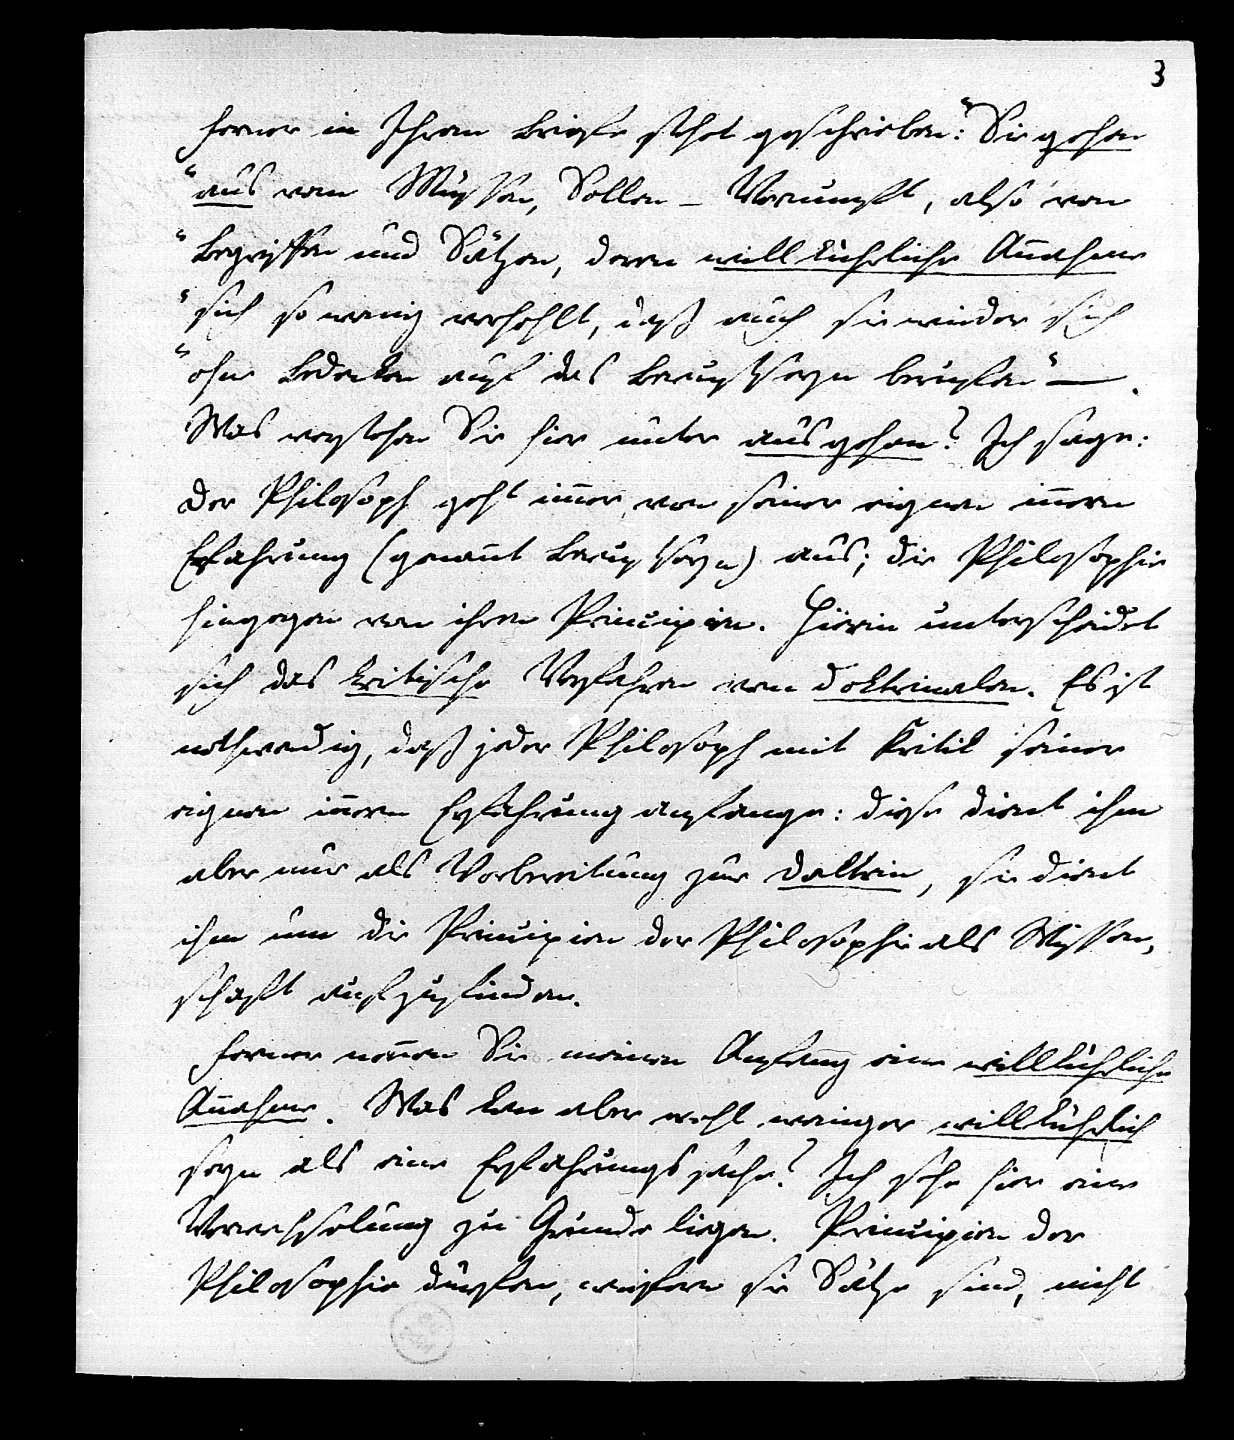 3
Ferner in Ihrem Briefe steht geschrieben: "Sie gehen
"aus vom Müssen, Sollen – Vernunft, also von
"Begriffen und Sätzen, deren willkührliche Annahme
"sich so wenig verhehlt, daß auch sie wieder sich
"ohne Bedenken auf das Bewußtseyn berufen" —.
Was verstehen Sie hier unter ausgehen? Ich sage:
Der Philosoph geht im̄er von seiner eignen in̄ern
Erfahrung (genan̄t Bewußtseyn) aus; die Philosophie
hingegen von ihren Principien. Hierin unterscheidet
sich das kritische Verfahren vom doktrinalen. Es ist
nothwendig, daß jeder Philosoph mit Kritik seiner
eignen in̄ern Erfahrung anfange: diese dient ihm
aber nur als Vorbereitung zur Doktrin, sie dient
ihm um die Principien der Philosophie als Wissen,
schaft aufzufinden.
Ferner nen̄en Sie meinen Anfang eine willkührliche
An̄ahme. Was kan aber wohl weniger willkührlich
seyn als eine Erfahrungssache? Ich sehe hier eine
Verwechselung zu Grunde liegen. Principien der
Philosophie dürfen, wiefern sie Sätze sind, nicht